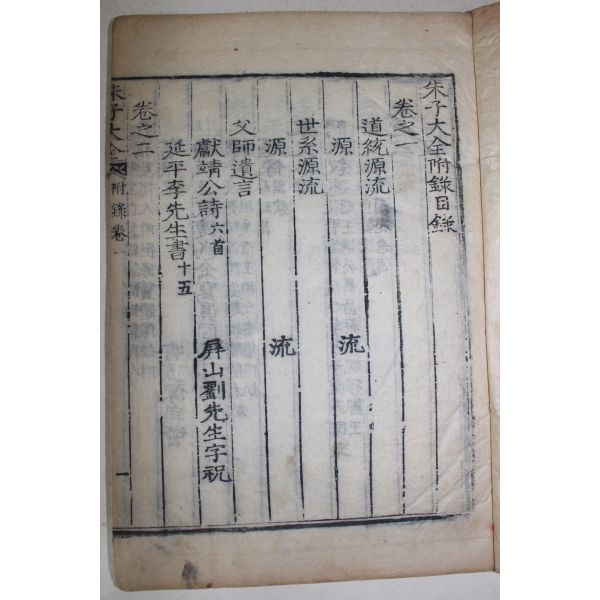 朱子大全附錄目錄
卷之一
道統源流
源 流
世系源流
源 流
父師遺言
獻靖公詩六首 屛山劉先生字祝
延平李先生書十五
卷之二
朱子大全 附錄卷一 一